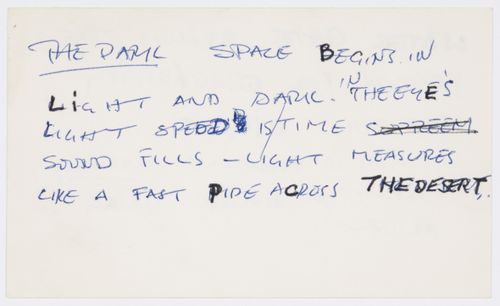 THE DARK SPACE BEGINS IN
LIGHT AND DARK. IN THE EYE'S
LIGHT SPEED IS TIME
SOUND FILLS – LIGHT MEASURES
LIKE A FAST RIDE ACROSS THE DESERT,